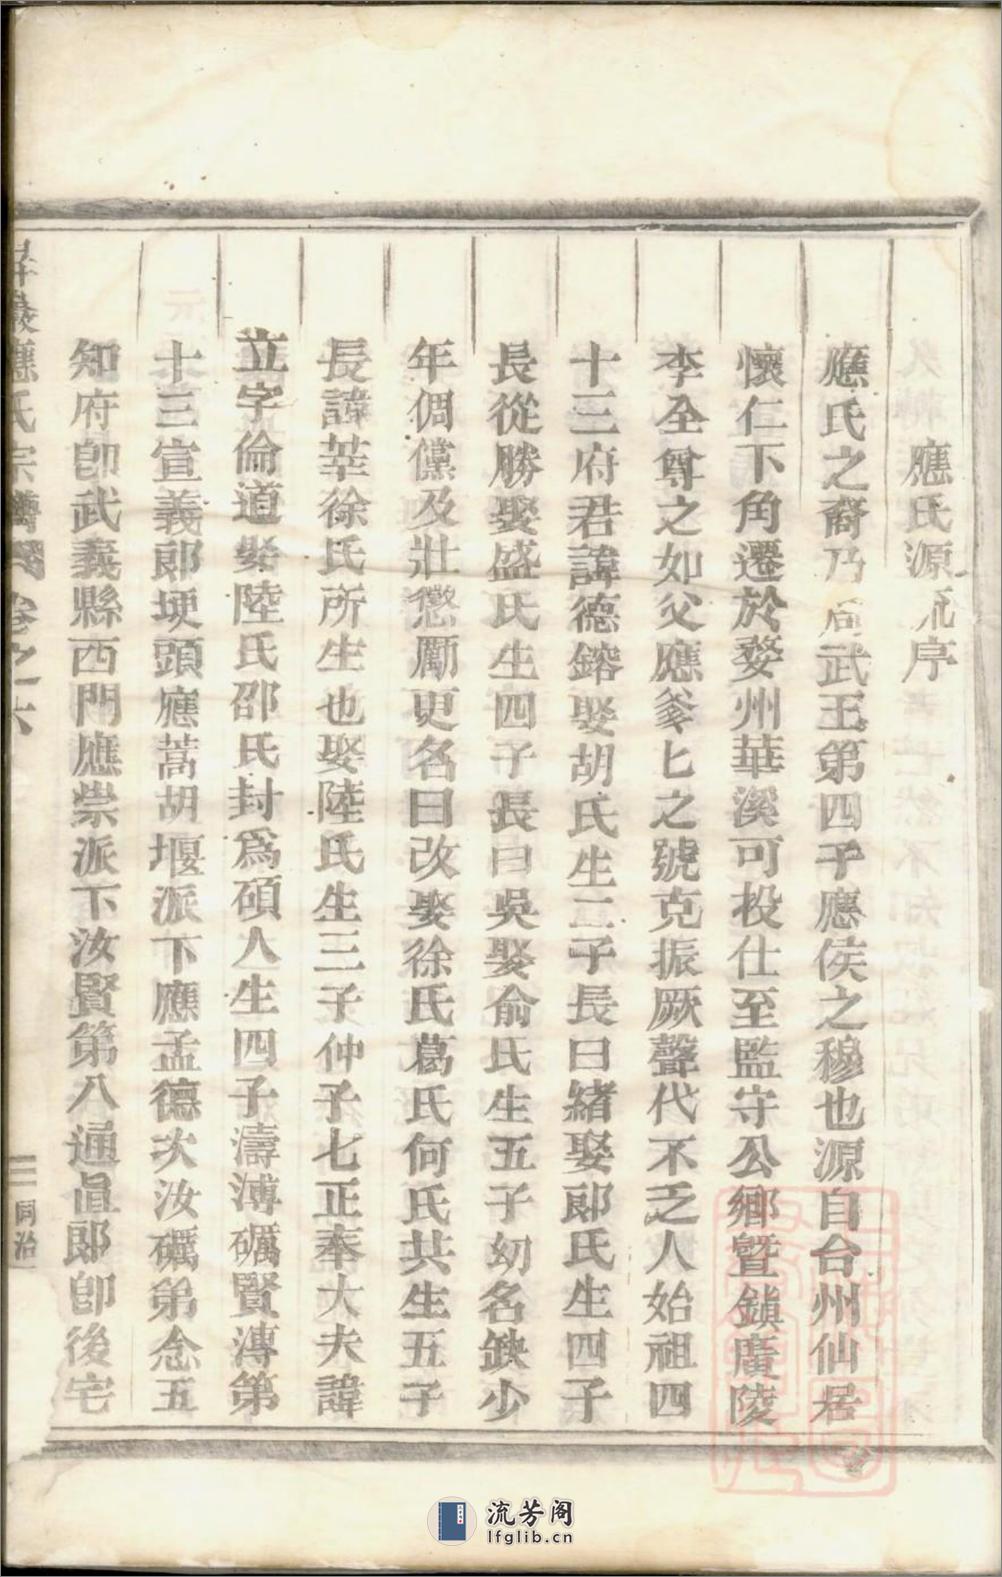 應氏源流序
應氏之裔乃周武王第四子應侯之穆也源自台州仙居
懷仁下角遷於婺州華溪可投仕至監守公鄉暨鎮廣陵
李全尊之如父應爹匕之號克振厥聲代不乏人始祖四
十三府君諱德鎔娶胡氏生二子長曰緒娶郞氏生四子
長從勝娶盛氏生四子長曰吳娶俞氏生五子幼名鉠少
年倜儻及壯懲勵更名曰改娶徐氏葛氏何氏共生五子
長諱莘徐氏所生也娶陸氏生三子仲子七正奉大夫諱
立字倫道娶陸氏邵氏封爲碩人生四子濤溥礪賢漙第
十三宣義郞埂頭應蒿胡堰派下應孟德次汝礪第念五
知府卽武義縣西門應崇派下汝賢第八通眞郞卽後宅
應氏宗譜 卷之六
同治
流芳阁
lfglib.cn